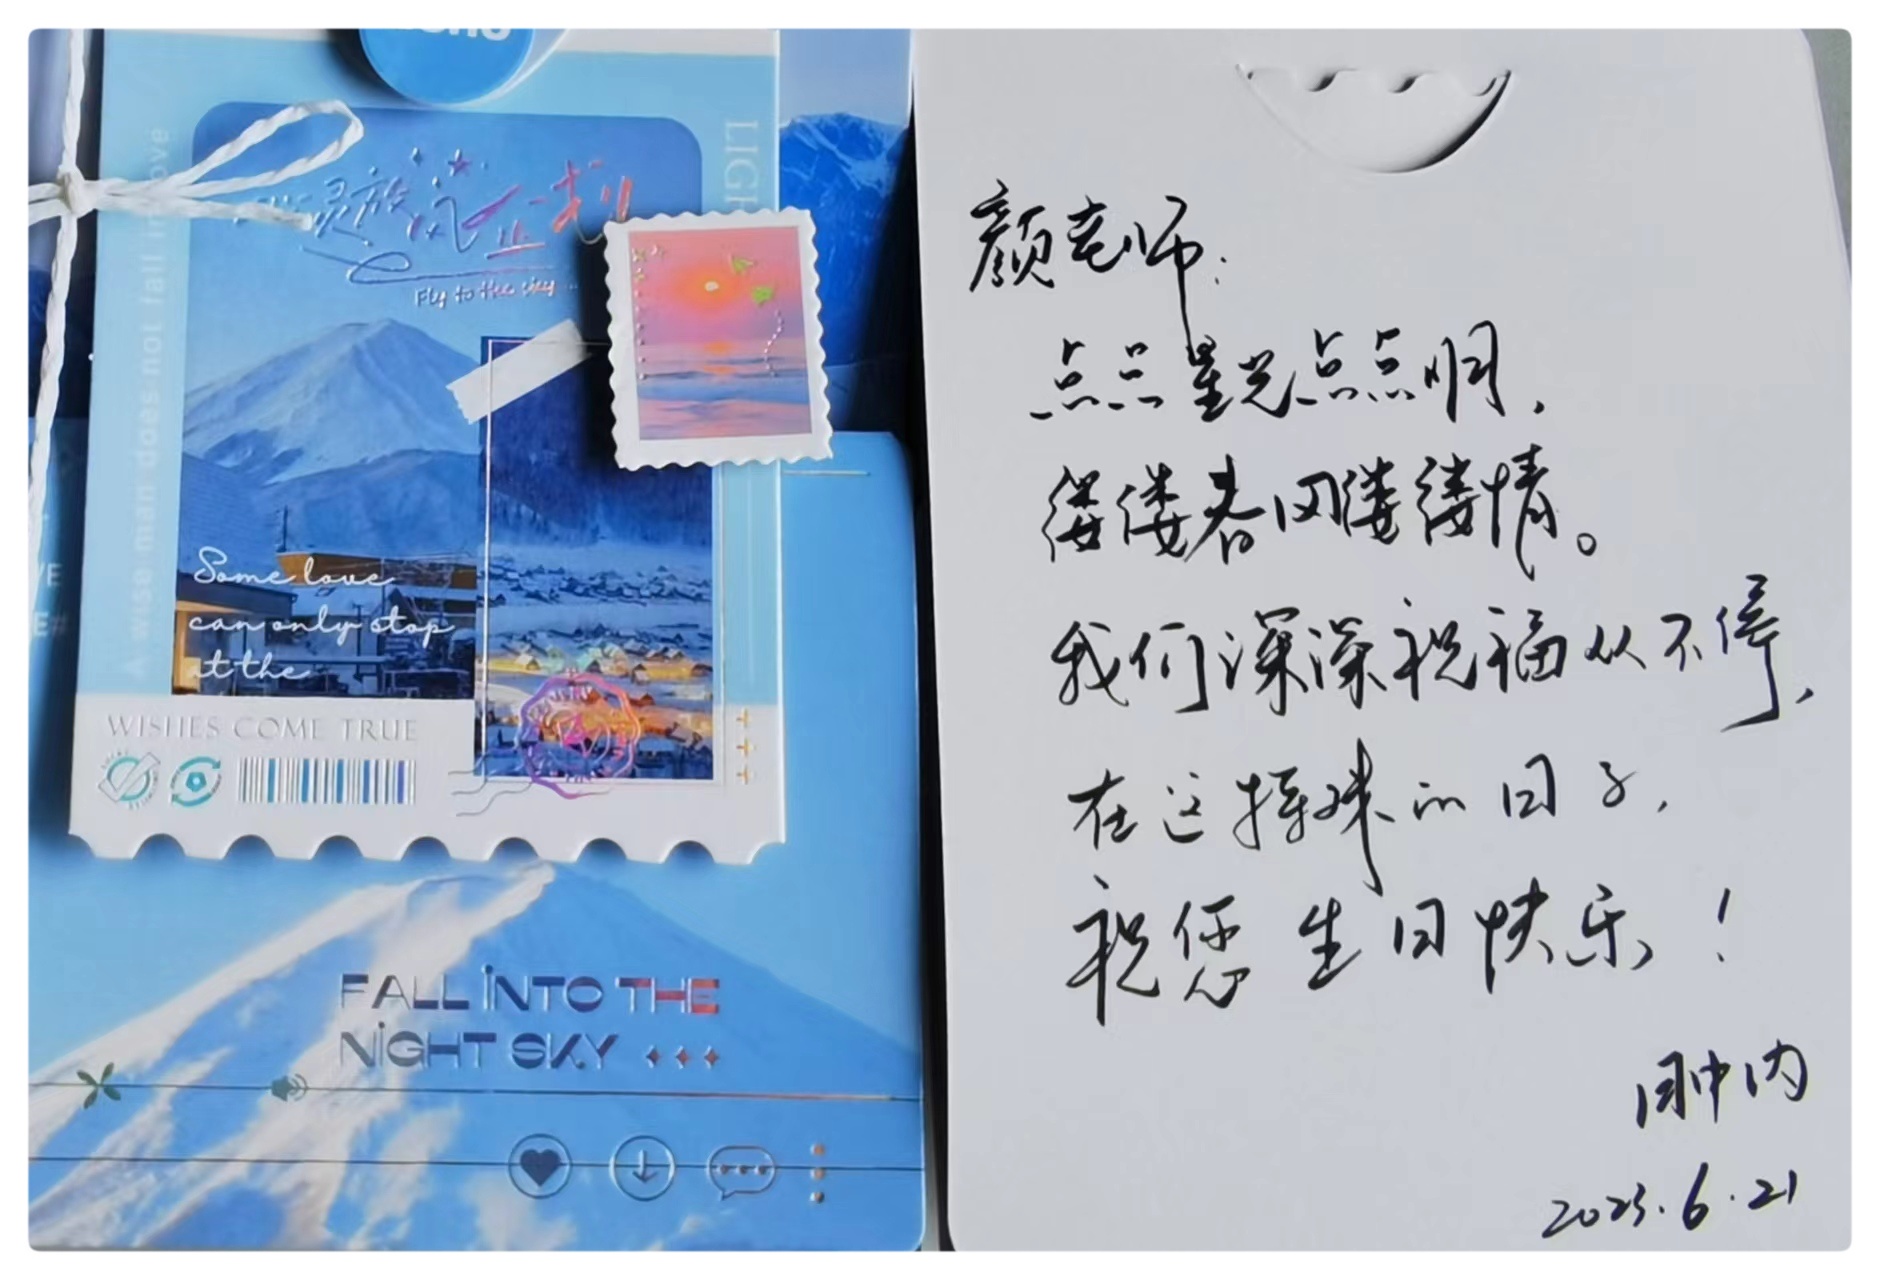 A wise man does not fall in love
LIGH
灵放风计划
Fly to the sky...
Some love
can only stop
at the
WISHES COME TRUE
FALL INTO THE
NIGHT SKY
颜老师:
点点星光点点明,
缕缕春风缕缕情。
我们深深祝福从不停,
在这特殊的日子,
祝您生日快乐!
2023.6.21